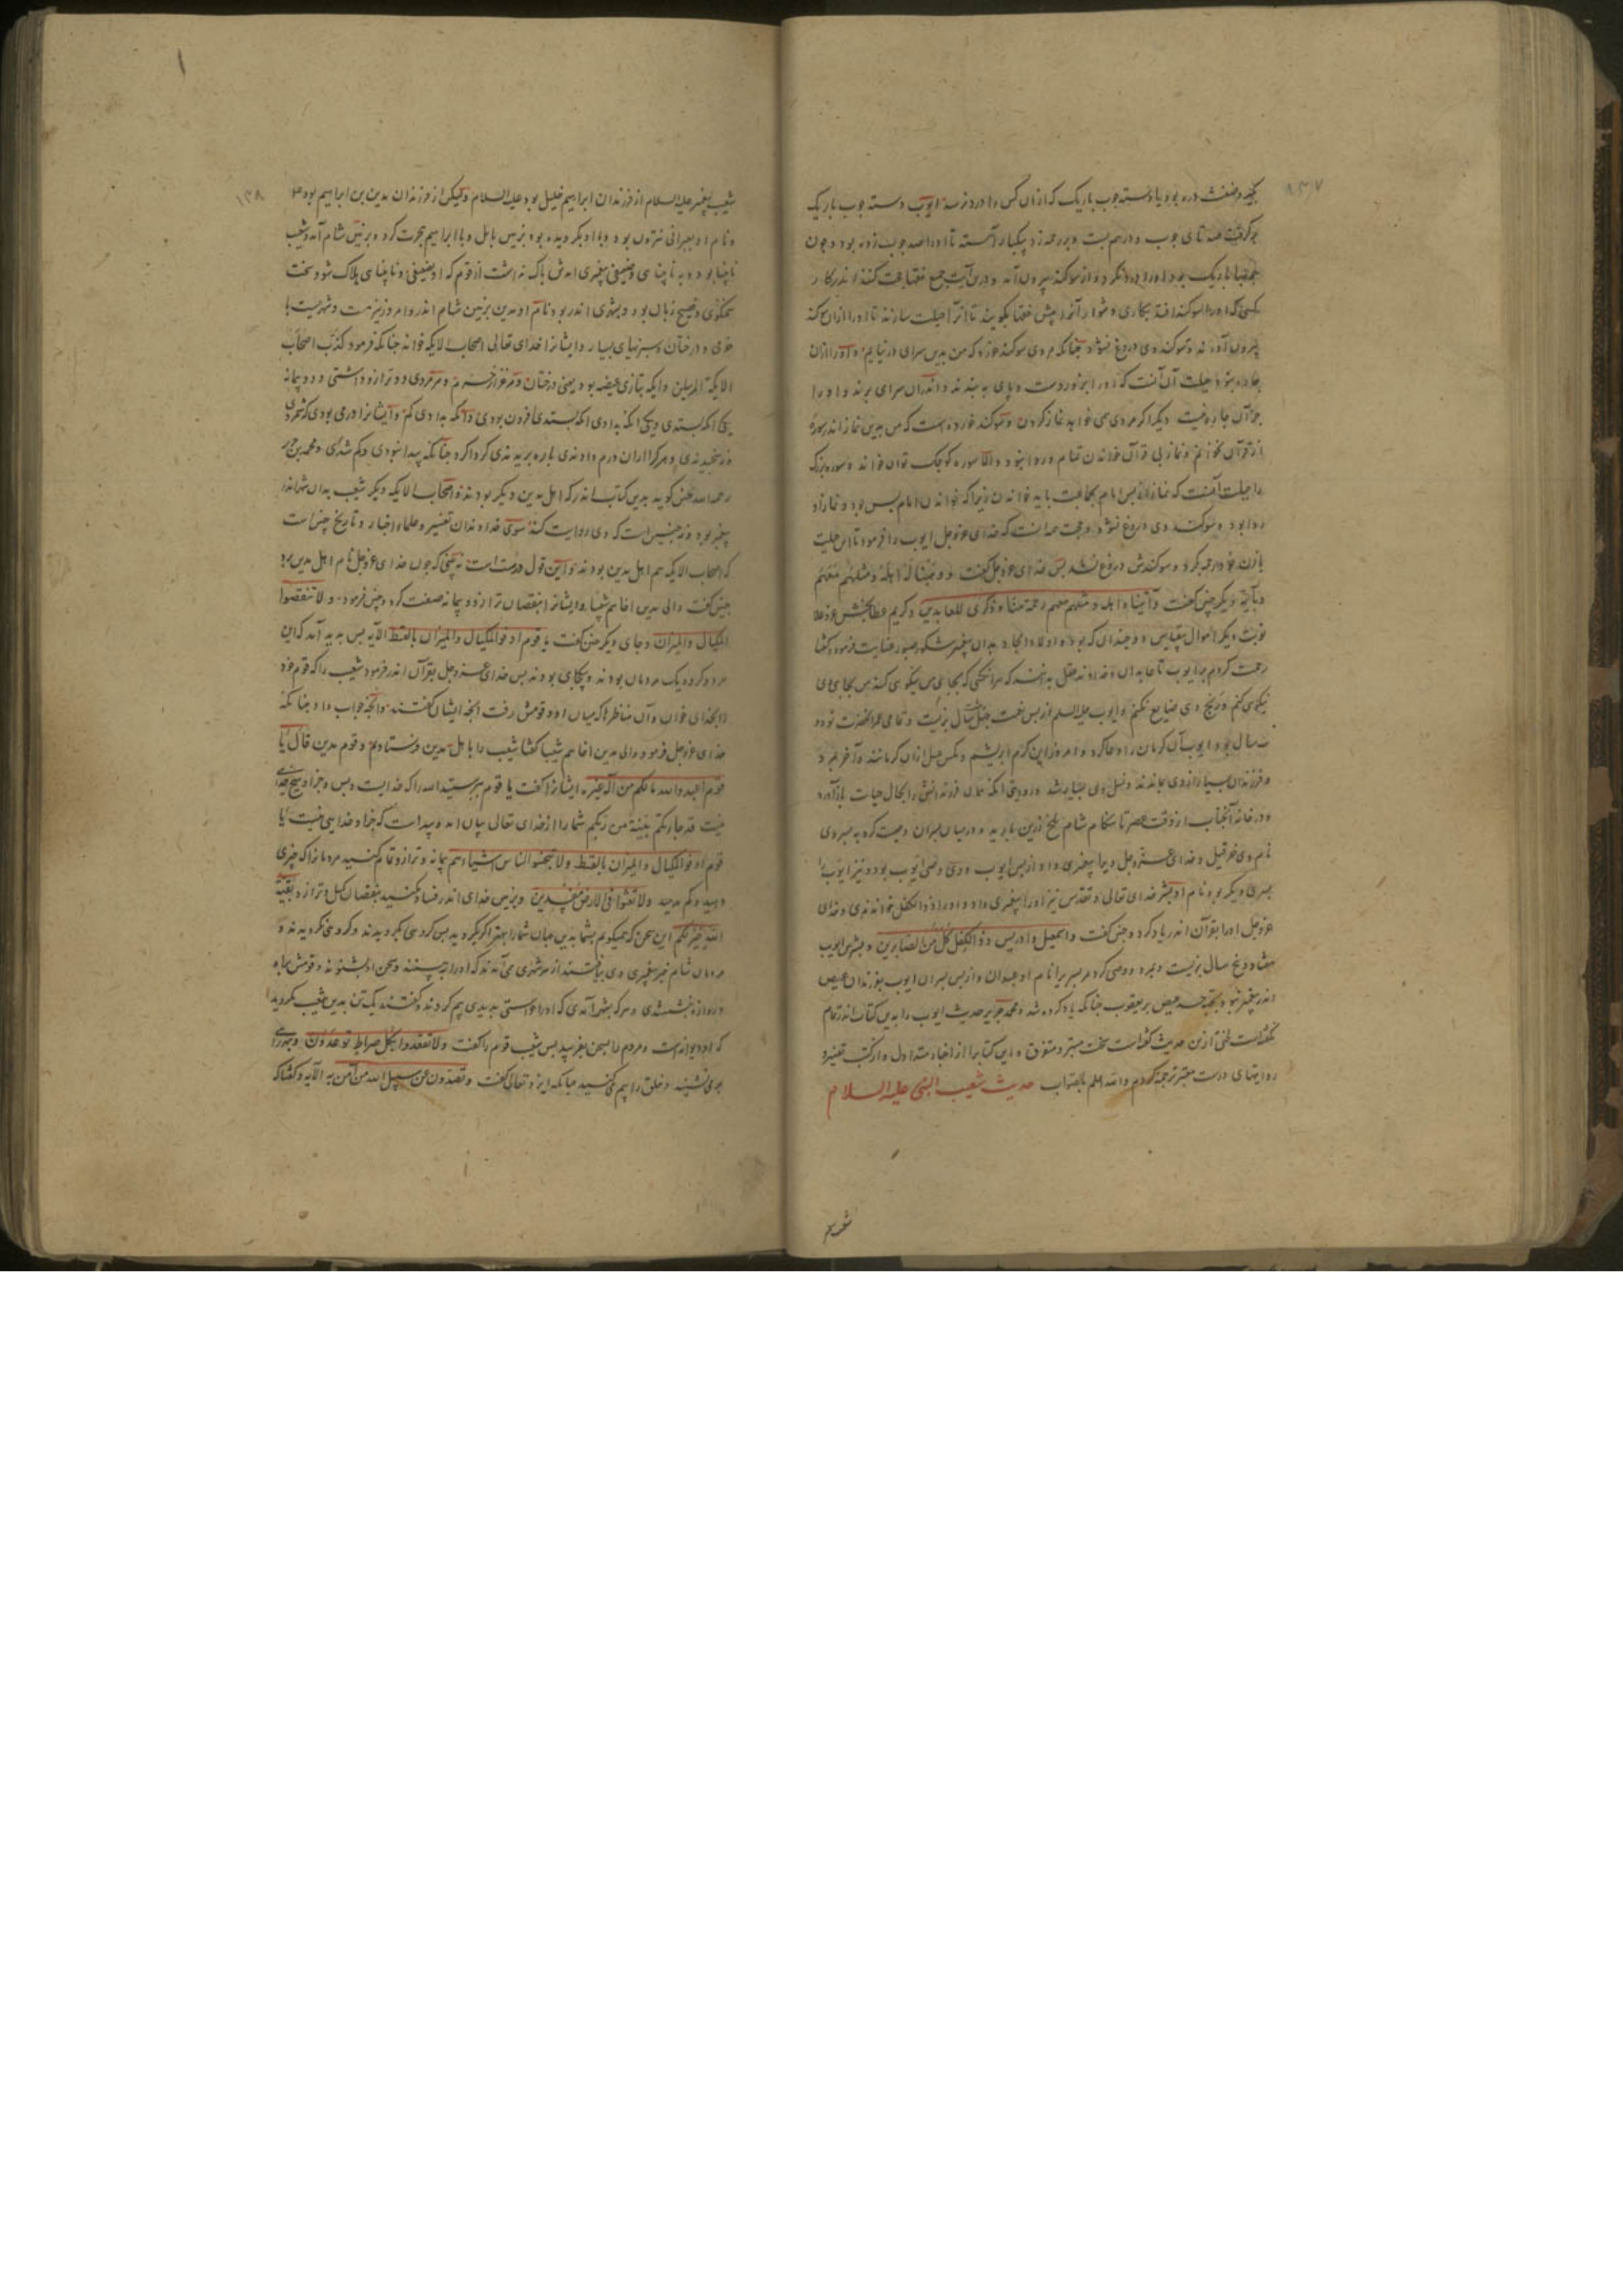 ۱۳۷
بود یا دسته چوب باریک که از آن کس دسته چوب باریک
بر گرفت صد تای چوب و درهم بست و بر رحمه زد یکبار آهسته تا او را صد چوب زده بود و چون
باریک بود او را درد نکرد و از سوکند بیرون آمد و درین آیت جمع فقها حجت کنند اندر کار
کسی که او را سوکند افتد بکاری دشوار آنرا پیش فقها بگویند تا آنرا حیلت سازند تا او را از آن سوکند
بیرون آورند و سوکند وی دروغ نشود چنانکه مردی سوکند خورد که من بدین سرای در نیایم و او را از آن
چاره نبود حیلت آن آنست که او را بر دست و پای به بندند و اندران سرای برند و او را
جز آن چاره نیست دیگر اگر مردی می خواهد نماز کردن و سوکند خورده است که من بدین نماز اندر سوره
از قرآن نخوانم و نماز بی قرآن خواندن تمام و روا نبود و الا سوره کوچک توان خواند و سوره بزرگ
را حیلت آنست که نماز از پس امام بجماعت باید خواندن زیرا که خواندن امام بس بود و نماز او
روا بود و سوکند وی دروغ نشود و حجت همه آنست که خدای عزوجل ایوب را فرمود تا این حیلت
با زن خود رحمه بکرد و سوکندش دروغ نشد پس خدای عزوجل گفت و وهبنا له اهله و مثلهم معهم
و بآیه دیگر چنین گفت و آتیناه اهله و مثلهم معهم رحمة منا و ذکری للعابدین و کریم عطابخش عز و علا
نوبت دیگر اموال بقیاس و چندان که بود و اولاد بدان پیغمبر شکور صبور عنایت فرمود و گفتا
رحمت کردم بر ایوب تا عابدان و خداوند عقل بدانند که هر آنکسی که بجای من نیکوی کند من بجای وی
نیکوی کنم و رنج وی ضایع نکنم و ایوب علیه السلم از پس نعمت سال بزیست و تمامی عمر آنحضرت نود و
سال بود و ایوب آن کرمان را دعا کرد و امروز این کرم ابریشم و مکس عسل از آن کرمانند و آخر بمرد
و فرزندان بسیار از وی بماندند و نسل وی بسیار شد و روایتی آنکه همان فرزندانش را بحال حیات باز آورد
و در خانه آنجناب از وقت عصر تا شام شام ملخ زرین بارید و در میان پسران وصیت کرد به پسر وی
نام وی حزقیل و خدای عزوجل ویرا پیغمبری داد و از پس ایوب وی وصی ایوب بود و نیز ایوب را
پسری دیگر بود نام او بشر خدای تعالی و تقدس نیز او را پیغمبری داد و او را ذوالکفل خواندندی و خدای
عزوجل او را بقرآن اندر یاد کرد و چنین گفت و اسمعیل و ادریس و ذا الکفل کل من الصابرین و بشر بن ایوب
هفتاد و پنج سال بزیست و بمرد و وصی کرد مر پسر یرا نام او عبدان و از پس پسران ایوب بفرزندان عیص
اندر پیغمبر نبود عیص بر یعقوب چنانکه یاد کرده شد و محمد جریر حدیث ایوب را بدین کتاب اندر تمام
نگفتست لختی ازین حدیث گفتست سخت مبتر و متفرق و این کتابرا از اخبار متداول و از کتب تفسیر و
روایتهای درست معتبر ترجمه کردم والله اعلم بالصواب حدیث شعیب النبی علیه السلام
۱۳۸
شعیب پیغمبر علیه السلام از فرزندان ابراهیم خلیل بود علیه السلام ولیکن از فرزندان مدین بن ابراهیم بود
و نام او بعبرانی یترون بود و با او بکرویده بود بزمین بابل و با ابراهیم هجرت کرد و بزمین شام آمد و شعیب
نابینا بود و به نابینای و ضعیفی پیغمبری آمدش باک نداشت از قوم که او بضعیفی و نابینای هلاک شود سخت
سخنگوی و فصیح زبان بود و بشهری اندر بود نام او مدین بزمین شام اندر و امروز نیز هست و شهریست با
خرمی و درختان و سبزیهای بسیار و ایشانرا خدای تعالی اصحاب الایکه خواند چنانکه فرمود کذب اصحاب
الایکة المرسلین و ایکه بتازی غیضه بود یعنی درختان و مرغزار خرم و هر مردی دو ترازو داشتی و دو پیمانه
یکی آنکه بستدی و یکی آنکه بدادی آنکه بستدی افزون بودی و آنکه بدادی کم و ایشانرا درمی بودی که بشمردی
نه بسنجیدندی و هر کرا از آن درم دادندی پاره بریدندی کرد اکرد چنانکه پیدا نبودی و کم شدی و محمد بن جریر
رحمه الله چنین کوید بدین کتاب اندر که اهل مدین دیگر بودند و اصحاب الایکه دیگر شعیب بدان شهر اندر
پیغمبر بود و نه چنین است که وی روایت کند سوی خداوندان تفسیر و علماء اخبار و تاریخ چنین است
که اصحاب الایکه هم اهل مدین بودند و این قول درست است نه بینی که چون خدای عزوجل نام اهل مدین برد
چنین گفت والی مدین اخاهم شعیبا و ایشانرا بنقصان ترازو و پیمانه صفت کرد و چنین فرمود و لا تنقصوا
المکیال و المیزان و جای دیگر چنین گفت یا قوم اوفوا المکیال و المیزان بالقسط الآیه پس بدید آمد که این
هر دو کروه یک مردمان بودند و یکجای بودند پس خدای عزوجل بقرآن اندر فرمود شعیب را که قوم خود
را بخدای خوان و آن مناظرها که میان او و قومش رفت آنچه ایشان گفتند و آنچه جواب داد چنانکه
خدای عزوجل فرمود والی مدین اخاهم شعیبا گفتا شعیب را باهل مدین فرستادیم و قوم مدین قال یا
قوم اعبدوا الله ما لکم من اله غیره ایشانرا گفت یا قوم بپرستید الله را که خدایست و بس و جز او هیچ خدای
نیست قد جاءتکم بینة من ربکم شما را از خدای تعالی بیان آمد و پیداست که جز او خدایی نیست یا
قوم اوفوا المکیال و المیزان بالقسط ولا تبخسوا الناس اشیاءهم پیمانه و ترازو تمام کنید مردمانرا که چیزی
دهید و کم مدهید ولا تعثوا فی الارض مفسدین و بزمین خدای اندر فساد مکنید بنقصان کیل و ترازو بقیة
الله خیر لکم این سخن که میگویم شما بدین میان شما را بهتر اگر بگروید پس کروهی بگرویدند و کروهی نگرویدند و
مردمان شام خبر پیغمبری وی بیافتند از هر شهری می آمدند که او را بپرسیدند و سخن او بشنوند و قومش براه
دروازه بنشستندی و هر که بشهر آمدی که او را خواستی بدیدی بیم کردند و گفتند یک تن بدین شعیب نگروید
که او دیوانه است و مردم را بسخن بفریبد پس شعیب قوم را گفت ولا تقعدوا بکل صراط توعدون و بهر راهی
بر می نشینید و خلق را بیم می کنید چنانکه ایزد تعالی گفت و تصدون عن سبیل الله من آمن به الآیه و گفتا که
شعیب